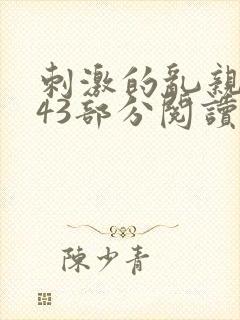 刺激的亂親
43部分閱讀
陳少青